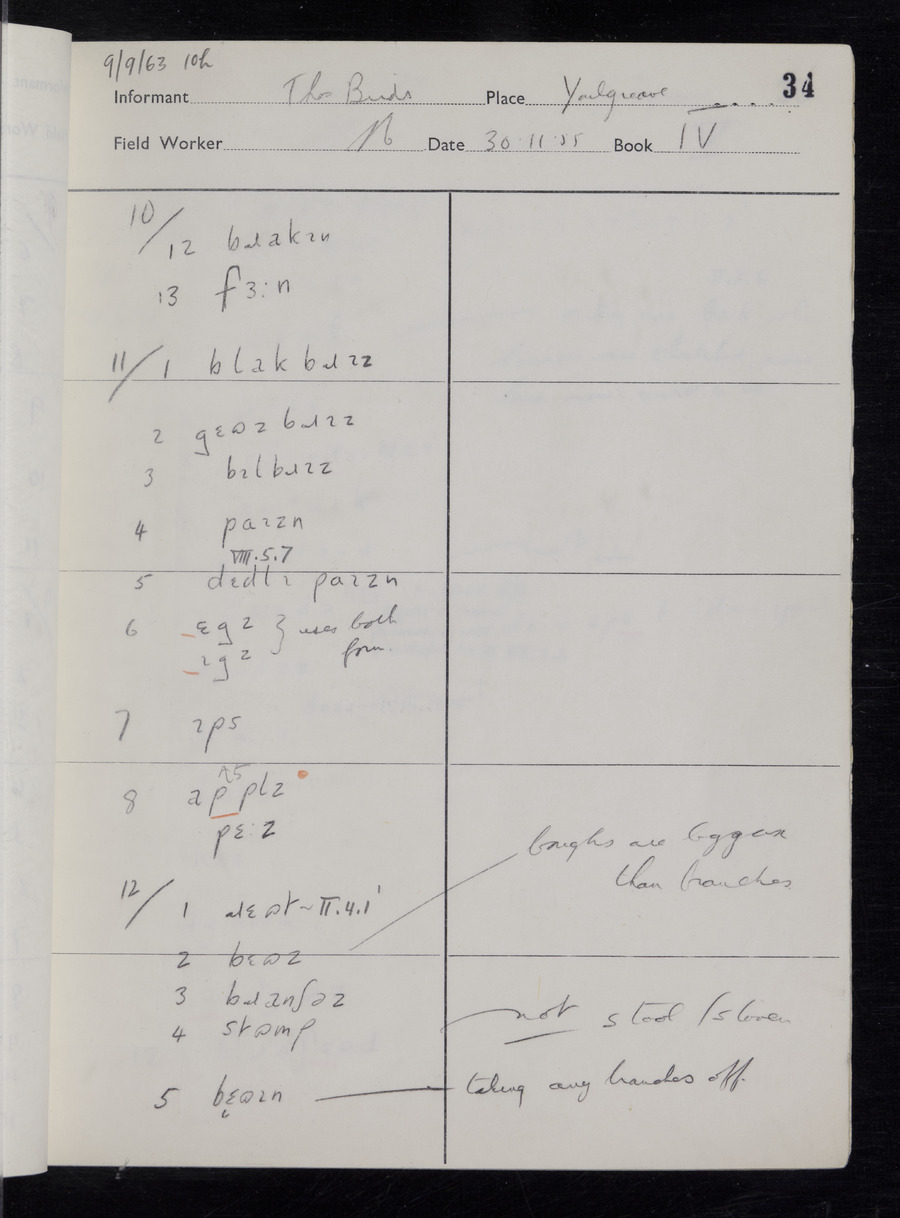 9/9/63 10h
34
Informant Thos Birds Place Youlgreave
Field Worker Date 30.11.55 Book IV
10/
12 bɹakɪn
13 fɜ:n
11/ 1 blakbɹɪz
2 gɛʊzbɹɪz
3 bɪlbɹɪz
4 paɪzn
VIII.5.7
5 dɛdlɪ paɪzn
6 ɛgz } uses both
ɪgz form.
7 ɪps
8 applz
pɛ:z
boughs are bigger
than branches
12/ 1 ɹɛʊt ~ II.4.1
2 bɛʊz
3 bɹanʃəz
4 stʊmp not stool / stoven
5 bɛʊɪn taking any branches off.